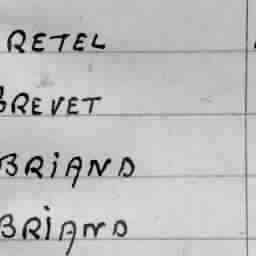 RETEL
BREVET
BRIAND
BRIAND